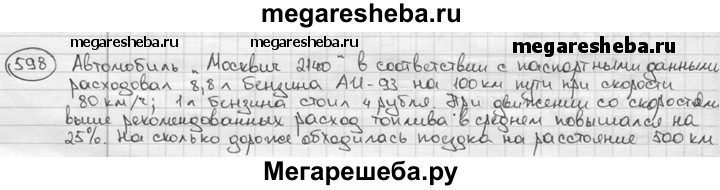 megaresheba.ru
megaresheba.ru megaresheba.ru
598 Автомобиль „Москвич 2140" в соответствии с паспортными данными
расходовал 8,8 л бензина АИ-93 на 100 км пути при скорости
80 км/ч; 1 л бензина стоил 4 рубля. При движении со скоростями
выше рекомендованных расход топлива в среднем повышался на
25%. На сколько дороже обходилась поездка на расстояние 500 км
Мегарешеба.ру